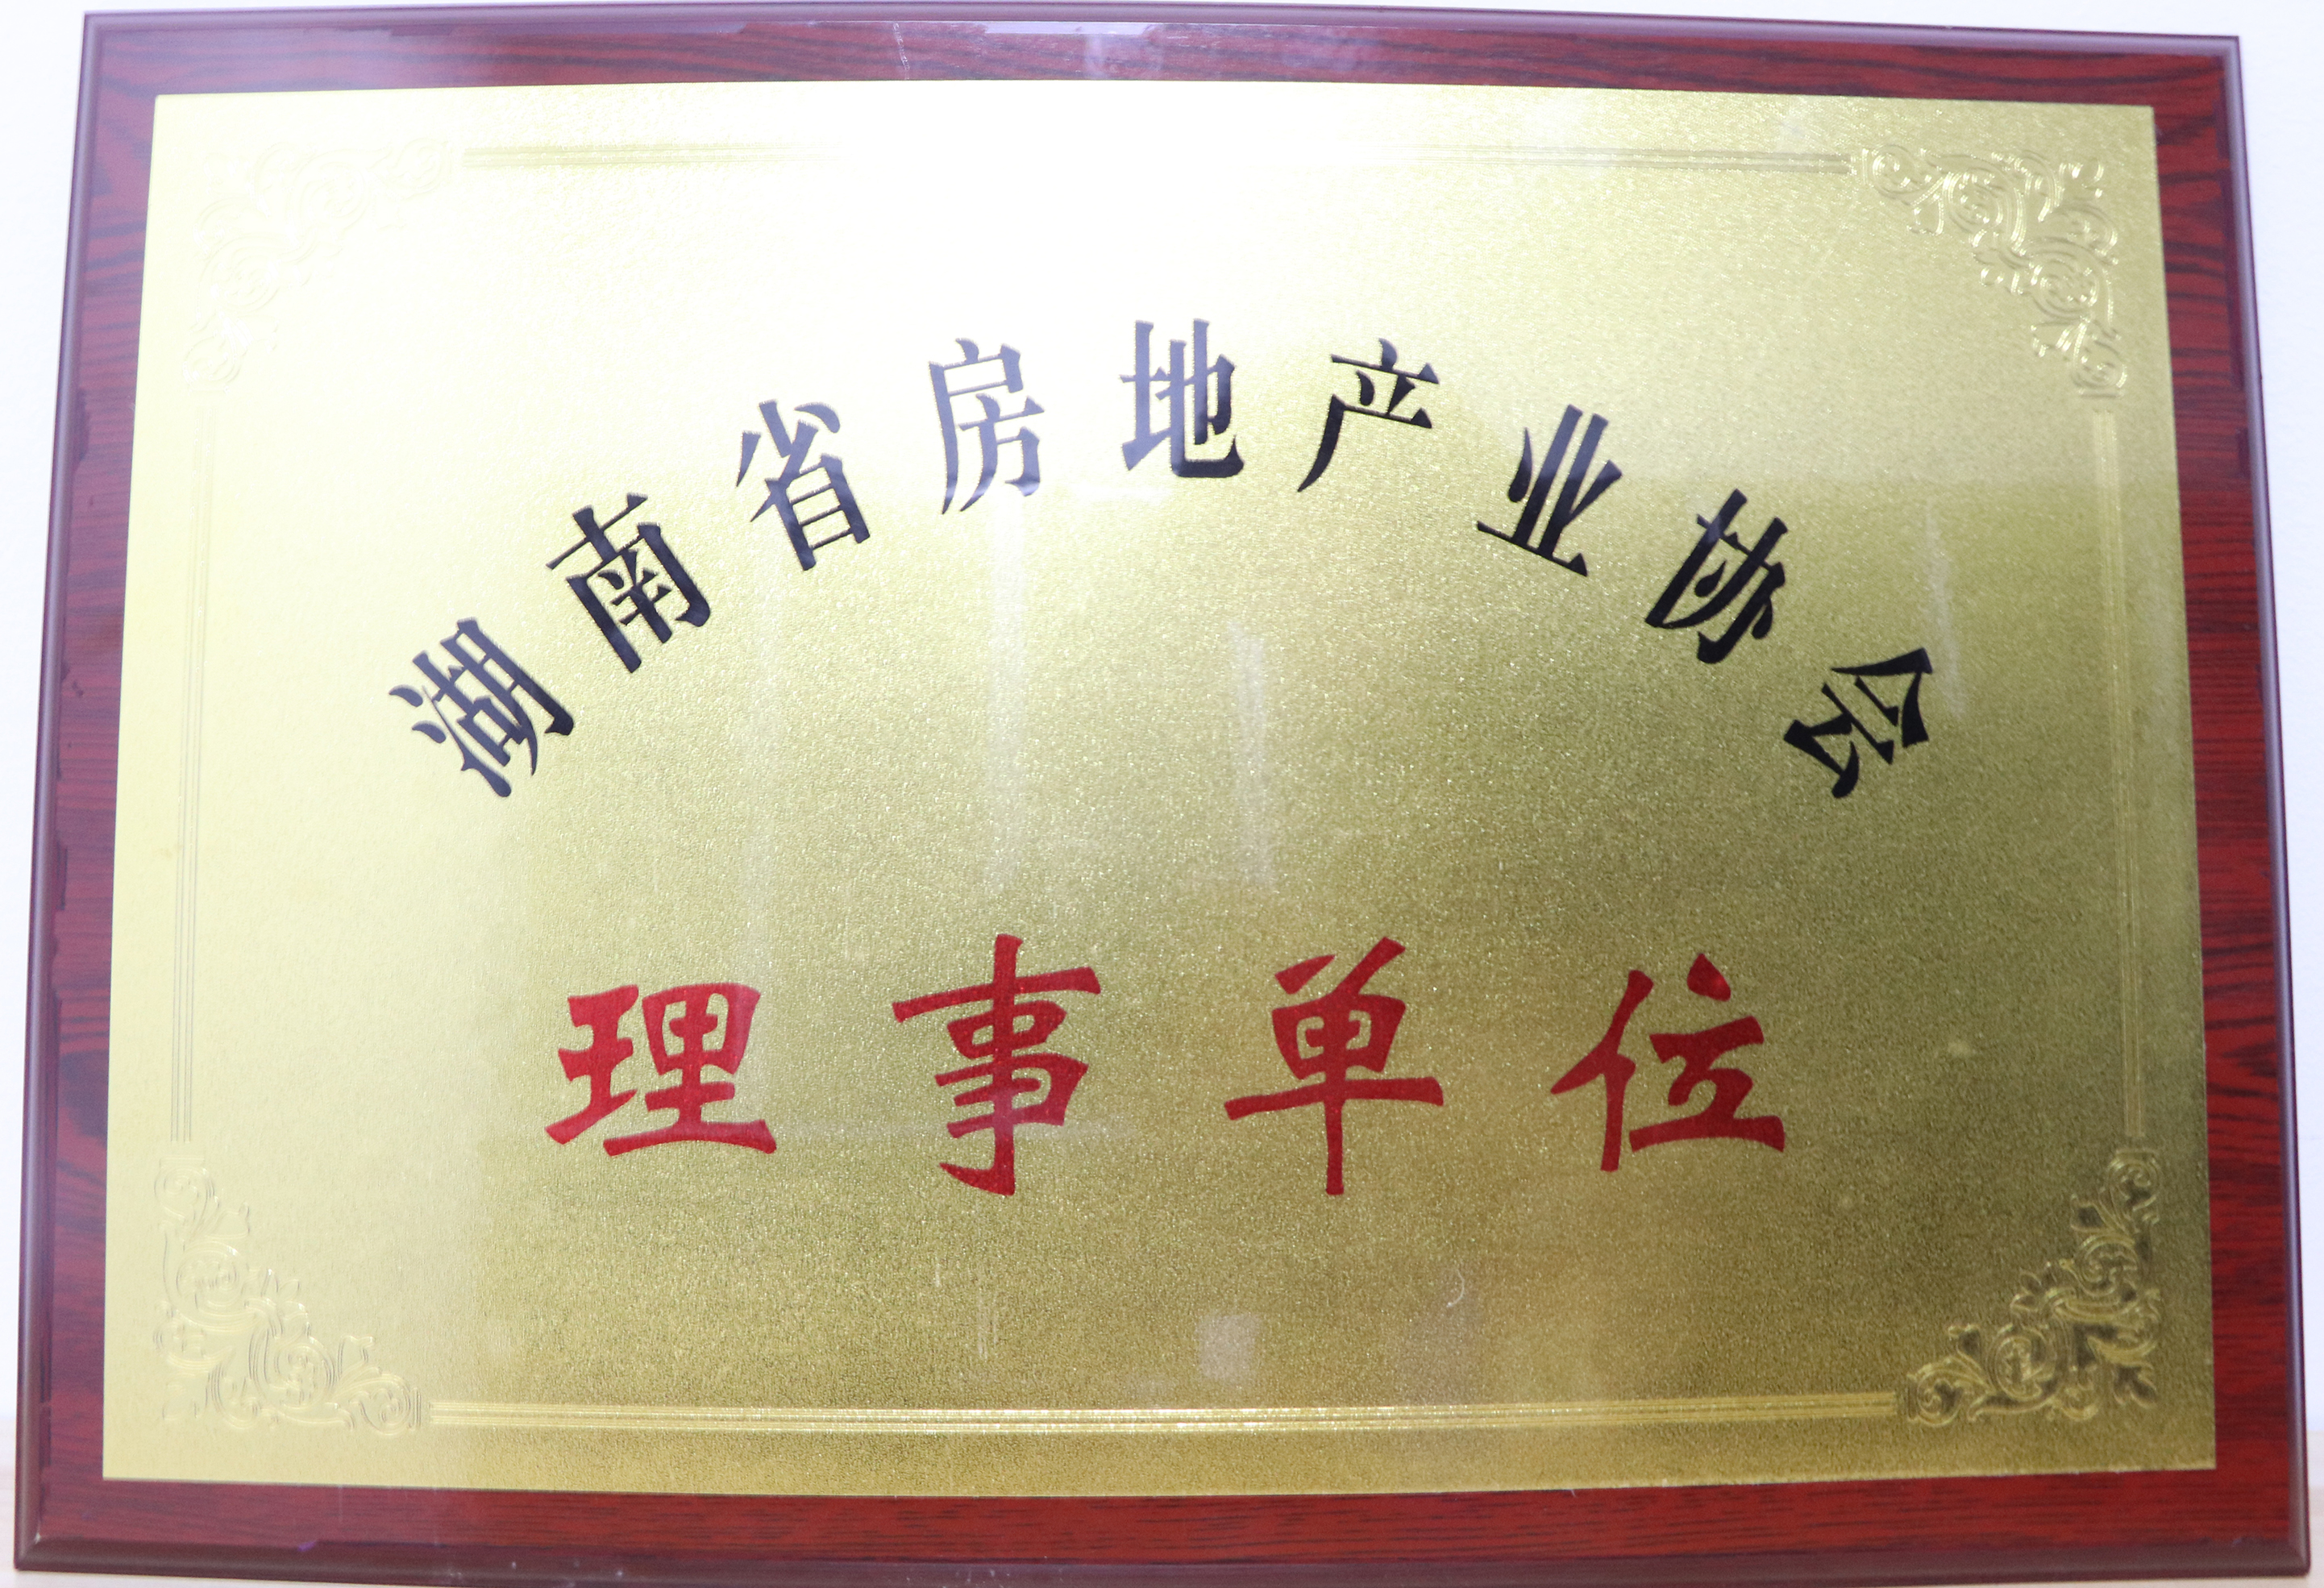 湖南省房地产业协会
理事单位